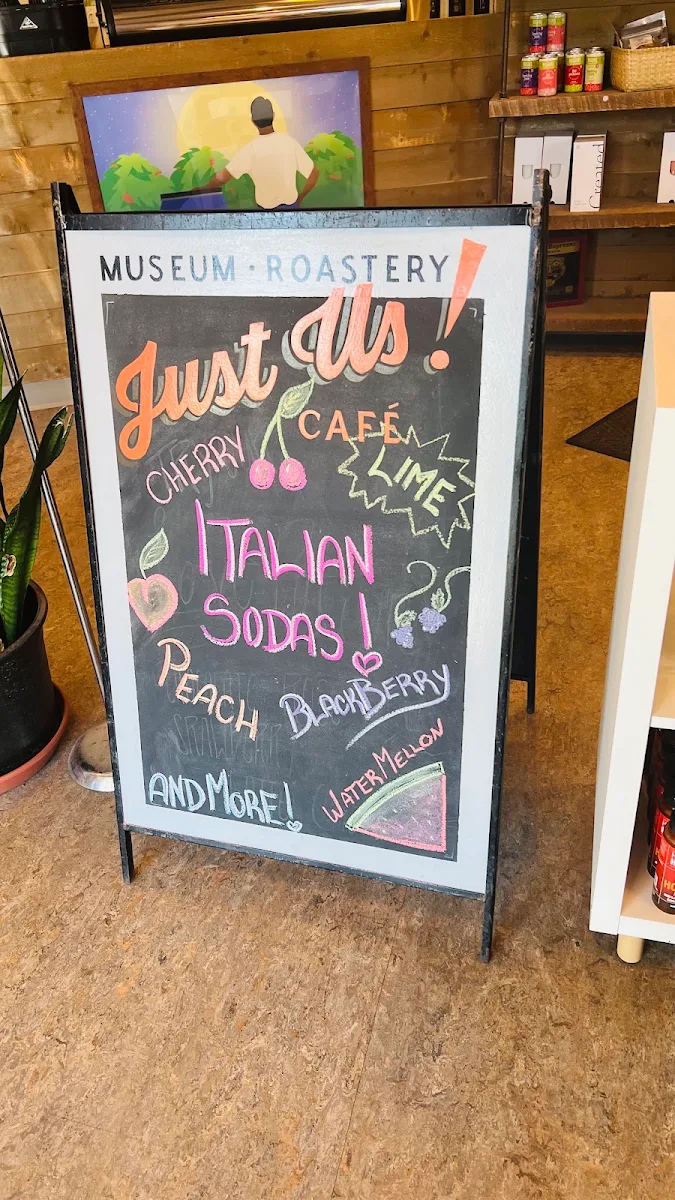 MUSEUM · ROASTERY
Just Us!
CAFÉ
CHERRY
LIME
ITALIAN
SODAS!
PEACH
BLACKBERRY
WATERMELLON
AND MORE!
Created